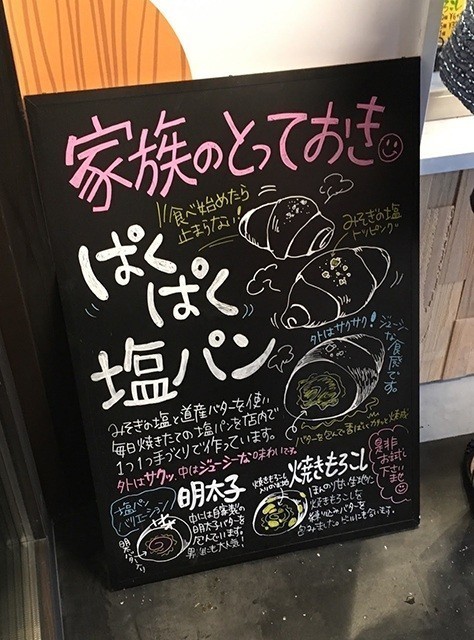 家族のとっておき
食べ始めたら
止まらない!
みそぎの塩
トッピング
ぱく
ぱく
塩パン
外はサクサク!ジューシーな食感です。
バターを包んで香ばしくカリッと焼成
みそぎの塩と道産バターを使い
毎日焼きたての塩パンを店内で
1つ1つ手づくりで作っています。
外はサクッ、中はジューシーな味わいです。
是非
お試し
下さい
塩パン
バリエーション
明太子
中には自家製の
明太子バターを
包んでいます。
男性にも大人気!
焼きもろこし
焼きもろこし
入りの生地
ほんのり甘い生地に
焼きもろこしを
練り込みバターを
包みました。ビールにも合います。